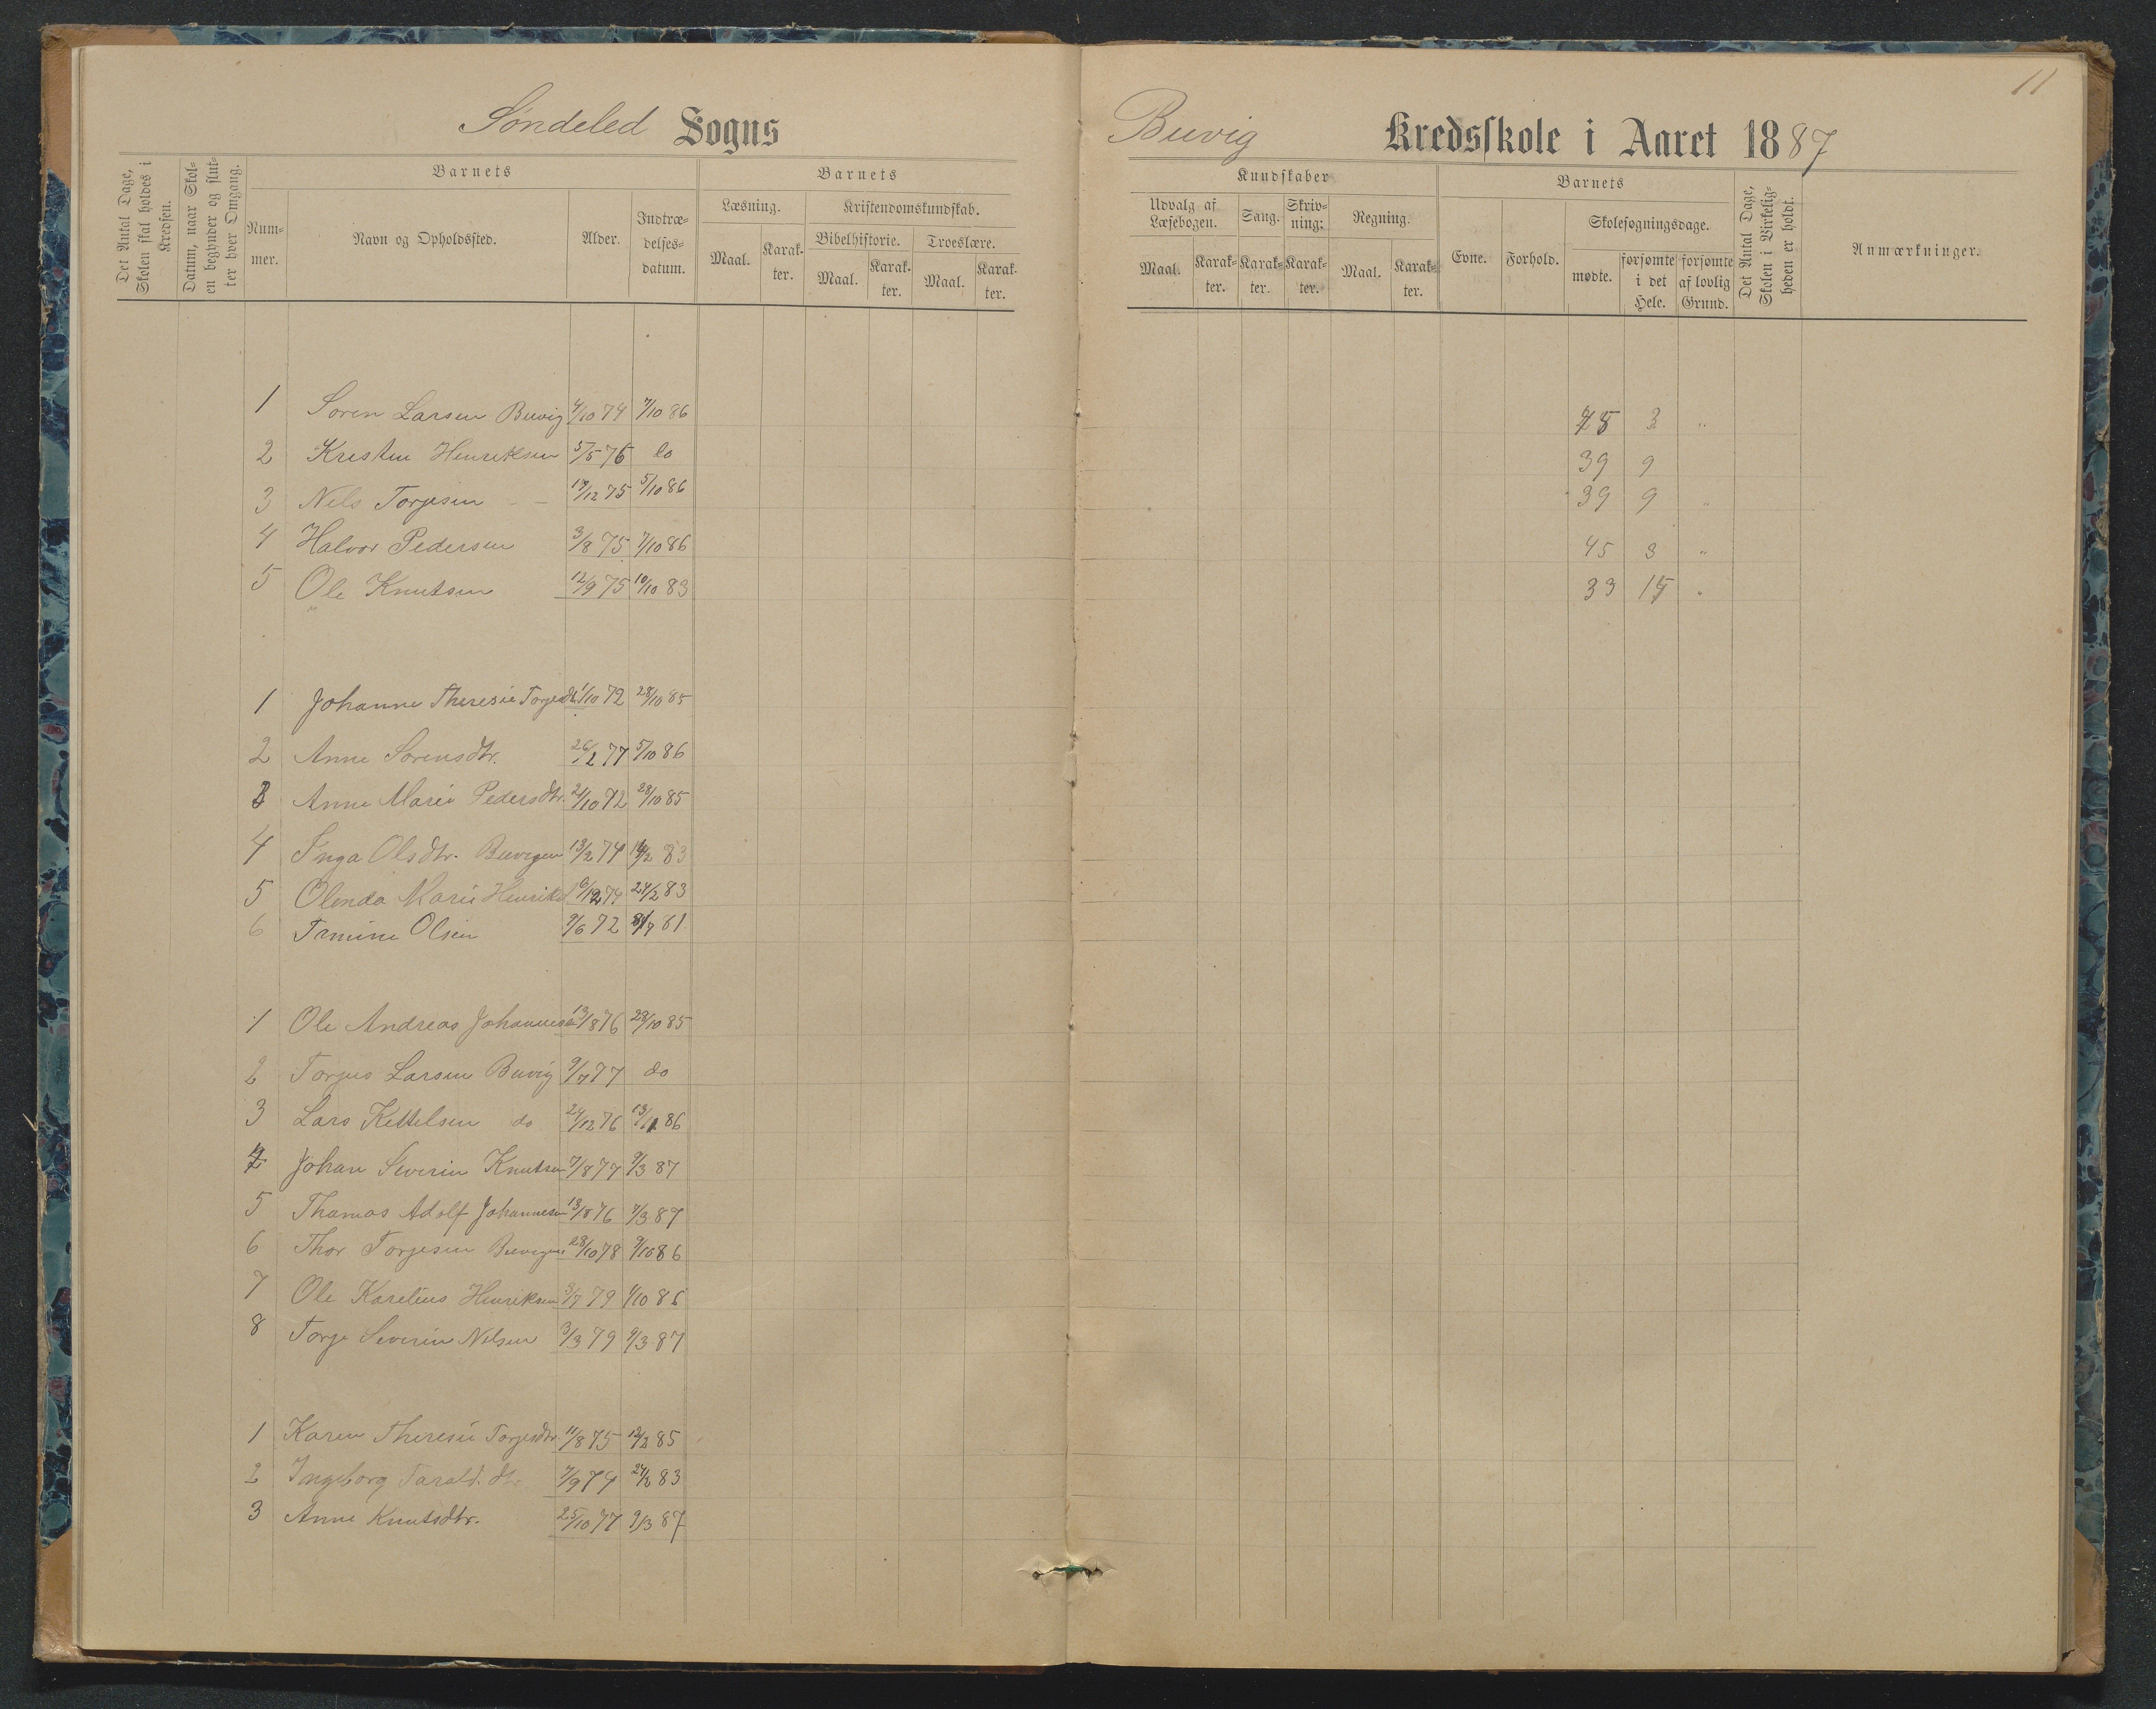 11
Søndeled Sogns
Buvig Kredsskole i Aaret 1887
Det Antal Dage, Skolen skal holdes i Kredsen.
Datum, naar Skolen begynder og slutter hver Omgang.
Barnets
Nummer.
Navn og Opholdssted.
Alder.
Indtrædelsesdatum.
Barnets
Læsning.
Maal.
Karakter.
Kristendomskundskab.
Bibelhistorie.
Maal.
Karakter.
Troeslære.
Maal.
Karakter.
Kundskaber
Udvalg af Læsebogen.
Maal.
Karakter.
Sang.
Karakter.
Skrivning.
Karakter.
Regning.
Maal.
Karakter.
Barnets
Evne.
Forhold.
Skolesøgningsdage.
mødte.
forsømte i det Hele.
forsømte af lovlig Grund.
Det Antal Dage, Skolen i Virkeligheden er holdt.
Anmærkninger.
1 Soren Larsen Buvig 4/10 74 7/10 86 45 3 "
2 Kristen Henriksen 5/5 76 do 39 9
3 Nils Torjesen - - 19/12 75 5/10 86 39 9 "
4 Halvor Pedersen 3/8 75 7/10 86 45 3 "
5 Ole Knutsen 12/9 75 10/10 83 33 15 "
1 Johanne Theresie Torjesdtr 1/10 72 28/10 85
2 Anne Sorensdtr. 26/2 77 5/10 86
3 Anne Marie Pedersdtr. 21/10 72 28/10 85
4 Inga Olsdtr. Buvigen 13/2 74 83
5 Olenda Marie Henriksd 74 24/2 83
6 Tomine Olsen 9/6 72 81
1 Ole Andreas Johannesen 13/8 76 28/10 85
2 Torjus Larsen Buvig 9/7 77 do
3 Lars Kettelsen do 24/12 76 13/11 86
4 Johan Severin Knutsen 7/8 77 9/3 87
5 Thomas Adolf Johannesen 13/8 76 7/3 87
6 Thor Torjesen Buvigen 28/10 78 9/10 86
7 Ole Karelius Henriksen 3/7 79 1/10 86
8 Torje Severin Nilsen 3/3 79 9/3 87
1 Karen Theresie Torjesdtr. 11/8 75 12/2 85
2 Ingeborg Tarald. dtr 7/9 74 24/2 83
3 Anne Knutsdtr. 25/10 77 9/3 87